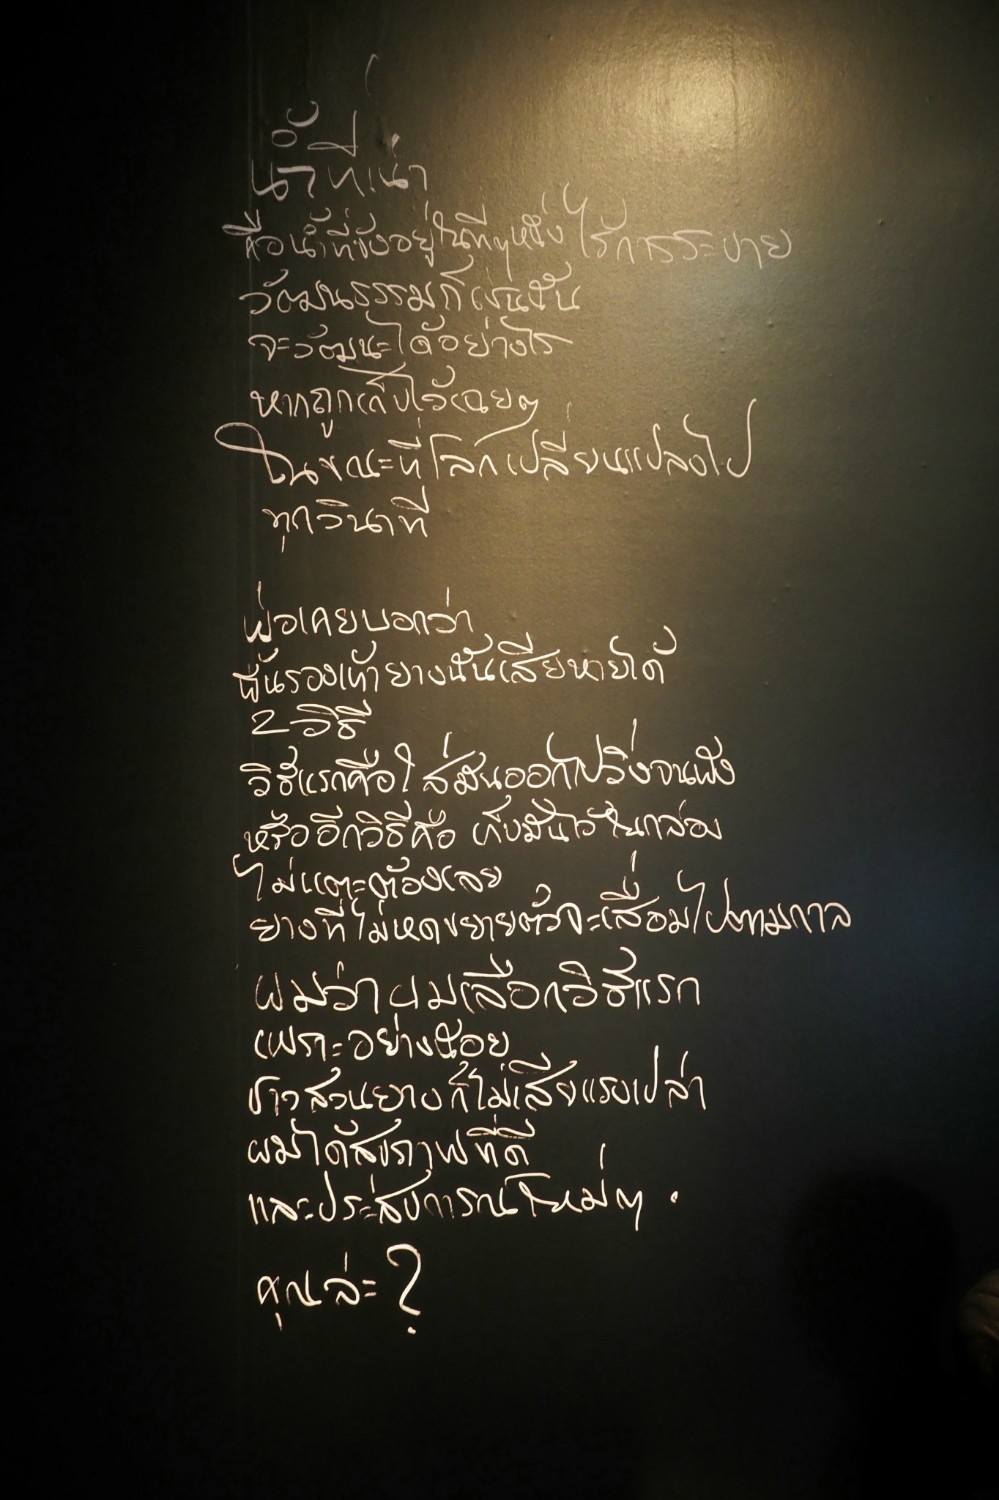 น้ำที่เน่า
คือน้ำที่ขังอยู่ในที่ๆหนึ่ง ไร้การระบาย
วัฒนธรรมก็เช่นนั้น
จะวัฒนะได้อย่างไร
หากถูกเก็บไว้เฉยๆ
ในขณะที่โลกเปลี่ยนแปลงไป
ทุกวินาที
พ่อเคยบอกว่า
พื้นรองเท้ายางนั้นเสียหายได้
2 วิธี
วิธีแรกคือใส่มันออกไปวิ่งจนพัง
หรืออีกวิธีคือ เก็บมันไว้ในกล่อง
ไม่แตะต้องเลย
ยางที่ไม่หดขยายตัวจะเสื่อมไปตามกาล
ผมว่าผมเลือกวิธีแรก
เพราะอย่างน้อย
ชาวสวนยางก็ไม่เสียแรงเปล่า
ผมได้สุขภาพที่ดี
และประสบการณ์ใหม่ๆ .
คุณล่ะ ?